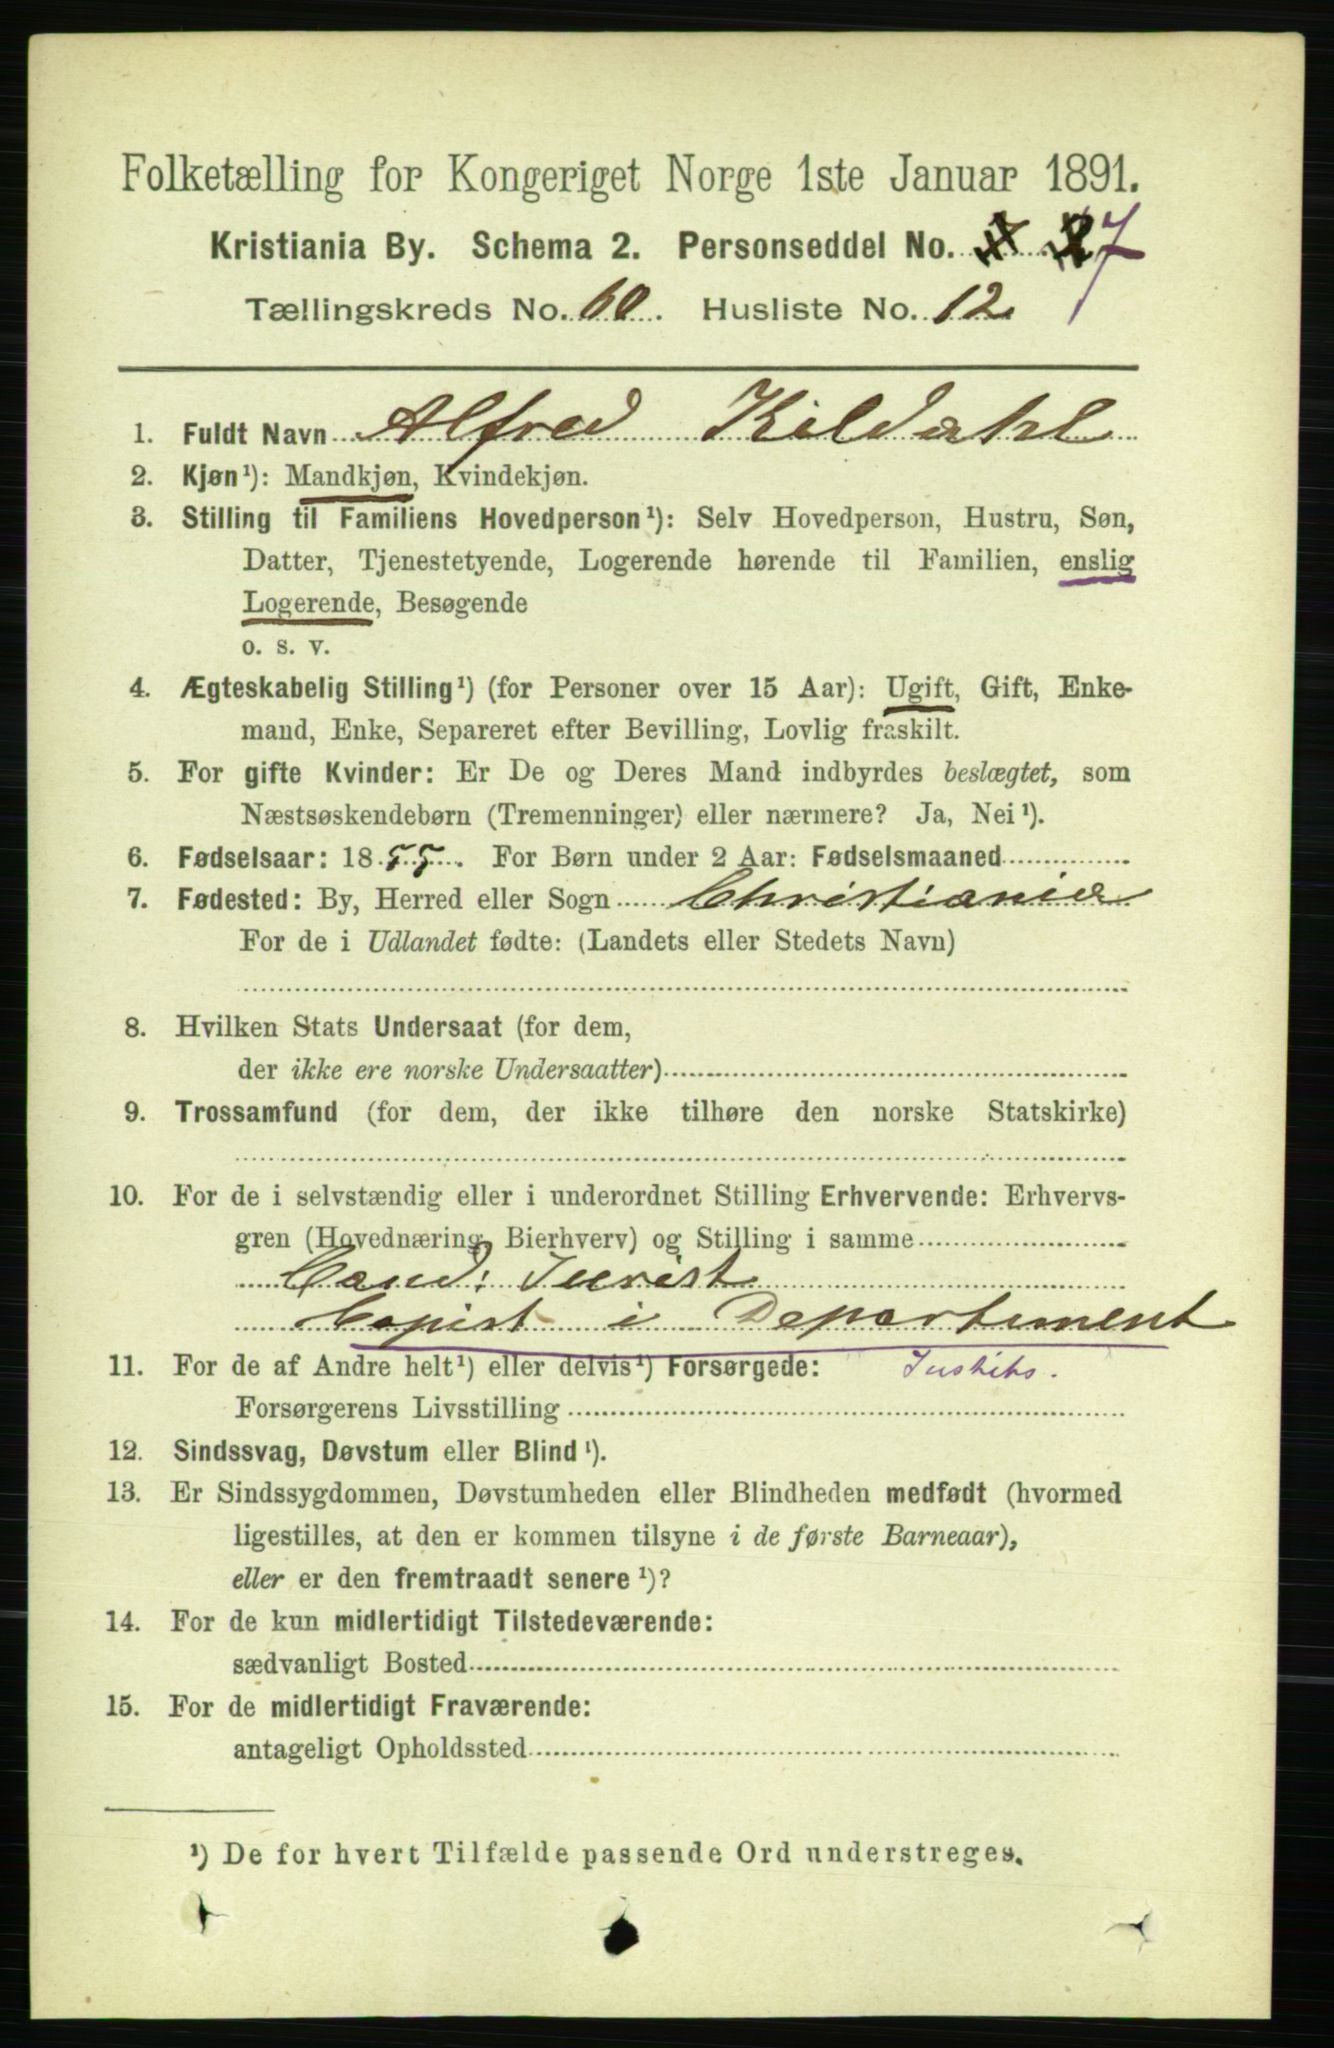 Folketælling for Kongeriget Norge 1ste Januar 1891.
Kristiania By. Schema 2. Personseddel No. 7
Tællingskreds No. 60. Husliste No. 12
1. Fuldt Navn Alfred Kildahl
2. Kjøn¹): Mandkjøn, Kvindekjøn.
3. Stilling til Familiens Hovedperson¹): Selv Hovedperson, Hustru, Søn,
Datter, Tjenestetyende, Logerende hørende til Familien, enslig
Logerende, Besøgende
o. s. v.
4. Ægteskabelig Stilling¹) (for Personer over 15 Aar): Ugift, Gift, Enke-
mand, Enke, Separeret efter Bevilling, Lovlig fraskilt.
5. For gifte Kvinder: Er De og Deres Mand indbyrdes beslægtet, som
Næstsøskendebørn (Tremenninger) eller nærmere? Ja, Nei¹).
6. Fødselsaar: 1855. For Børn under 2 Aar: Fødselsmaaned
7. Fødested: By, Herred eller Sogn Christiania
For de i Udlandet fødte: (Landets eller Stedets Navn)
8. Hvilken Stats Undersaat (for dem,
der ikke ere norske Undersaatter)
9. Trossamfund (for dem, der ikke tilhøre den norske Statskirke)
10. For de i selvstændig eller i underordnet Stilling Erhvervende: Erhvervs-
gren (Hovednæring, Bierhverv) og Stilling i samme
Cand: Jurist
Copist i Departement
11. For de af Andre helt¹) eller delvis¹) Forsørgede: Justits.
Forsørgerens Livsstilling
12. Sindssvag, Døvstum eller Blind¹).
13. Er Sindssygdommen, Døvstumheden eller Blindheden medfødt (hvormed
ligestilles, at den er kommen tilsyne i de første Barneaar),
eller er den fremtraadt senere¹)?
14. For de kun midlertidigt Tilstedeværende:
sædvanligt Bosted
15. For de midlertidigt Fraværende:
antageligt Opholdssted
¹) De for hvert Tilfælde passende Ord understreges.